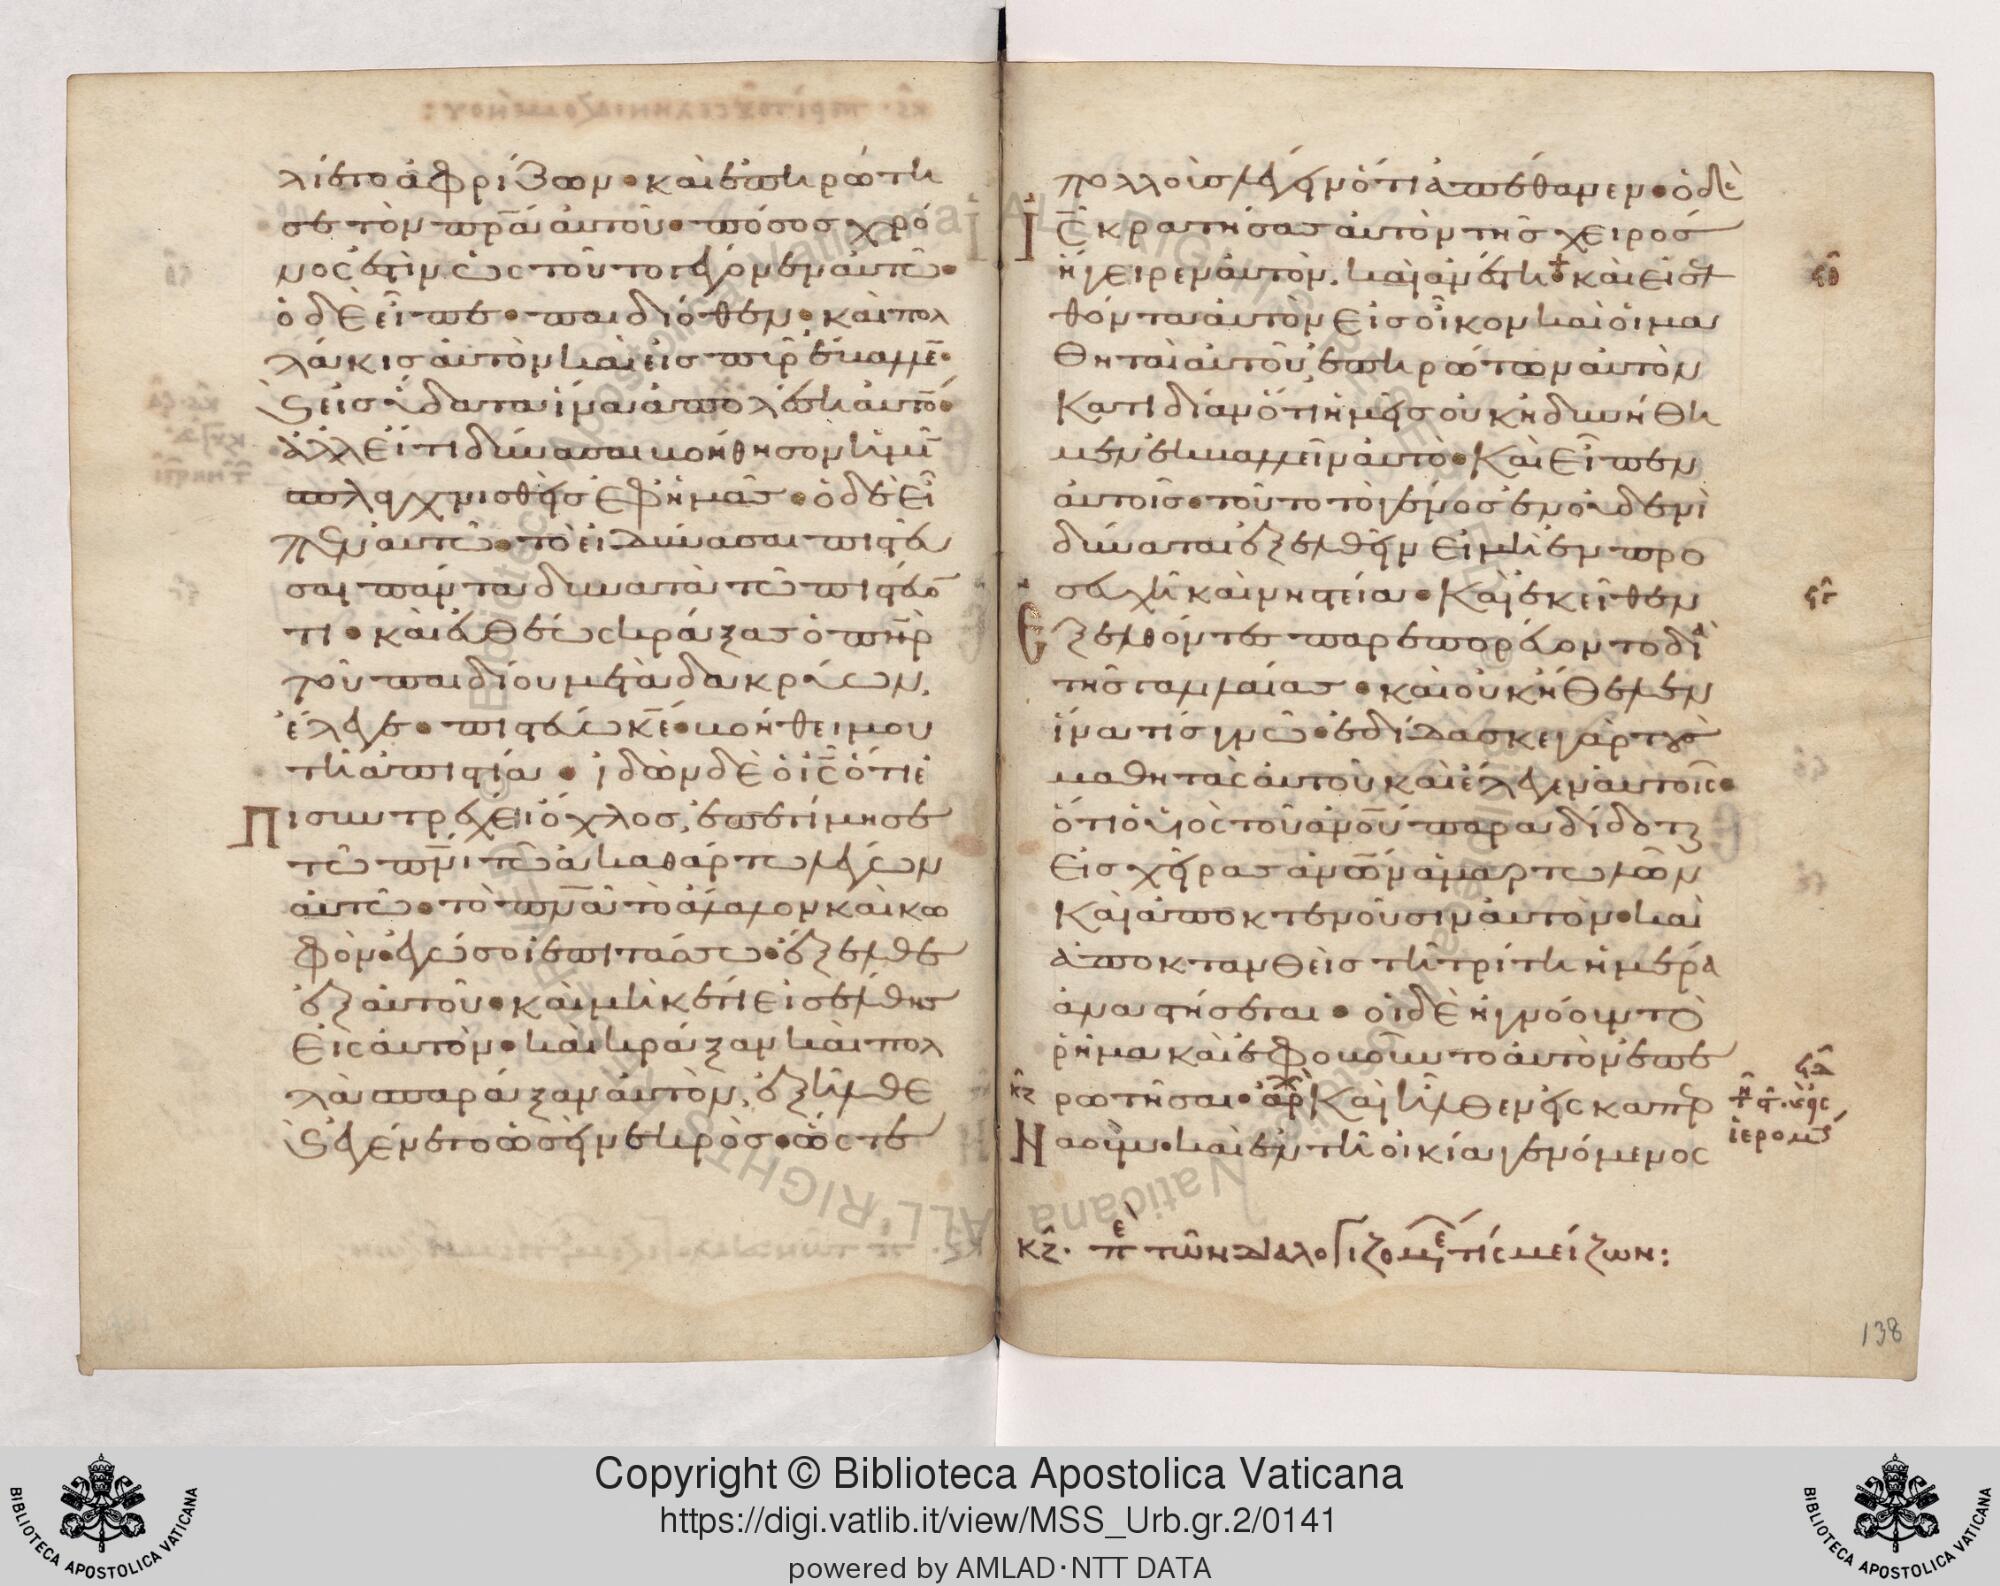 λίετο ἀφρίζων· καὶ ἐπηρώτη
σε τὸν πρ̅α αὐτοῦ· πόσος χρό
νος ἐστὶν ὡς τοῦτο γέγονεν αὐτῶ·
ὁ δὲ εἶπε· παιδιόθεν· καὶ πολ
λάκις αὐτὸν καὶ εἰς πῦρ ἔβαλλε·
καὶ εἰς ὕδατα ἵνα ἀπολέση αὐτό·
ἀλλ εἴ τι δύνασαι βοήθησον ἡμῖ
σπλαγχνισθεὶς ἐφ ἡμᾶς· ὁ δὲ ἰς̅ εἶ
πεν αὐτῶ· τὸ εἰ δύνασαι πιστεῦ
σαι πάντα δυνατὰ τῶ πιστεύο
τι· καὶ εὐθέως κράξας ὁ πη̅ρ
τοῦ παιδίου μετὰ δακρύων,
ἔλεγε· πιστεύω κ̅ε· βοήθει μου
τῆ ἀπιστία· ἰδὼν δὲ ὁ ἰς̅ ὅτι ἐ
πισυντρέχει ὄχλος, ἐπετίμησε
τῶ πν̅ι τῶ ἀκαθάρτω λέγων
αὐτῶ· τὸ πν̅α τὸ ἄλαλον καὶ κω
φὸν· ἐγώ σοι ἐπιτάσσω· ἔξελθε
ἐξ αὐτοῦ· καὶ μηκέτι εἰσέλθης
εἰς αὐτὸν· καὶ κράξαν καὶ πολ
λὰ σπαράξαν αὐτὸν, ἐξῆλθε
καὶ ἐγένετο ὡσεὶ νεκρὸς· ὥστε
πολλοὺς λέγειν ὅτι ἀπέθανεν· ὁ δὲ
ἰς̅ κρατήσας αὐτὸν τῆς χειρὸς
ἤγειρεν αὐτὸν. καὶ ἀνέστη· καὶ εἰσελ
θόντα αὐτὸν εἰς οἶκον καὶ οἱ μα
θηταὶ αὐτοῦ ἐπηρώτων αὐτὸν
κατιδίαν ὅτι ἡμεῖς οὐκ ἠδυνήθη
μεν ἐκβαλλεῖν αὐτὸ· καὶ εἶπεν
αὐτοῖς· τοῦτο τὸ γένος ἐν οὐδενὶ
δύναται ἐξελθεῖν εἰ μὴ ἐν προ
σευχῆ καὶ νηστεία· καὶ ἐκεῖθεν
ἐξελθόντες παρεπορεύοντο διὰ
τῆς γαλιλαίας· καὶ οὐκ ἤθελεν
ἵνα τίς γνῶ· ἐδίδασκε γὰρ τοὺς
μαθητὰς αὐτοῦ καὶ ἔλεγεν αὐτοῖς·
ὅτι ὁ υἱὸς τοῦ ἀν̅ου παραδίδοται
εἰς χεῖρας ἀν̅ων ἁμαρτωλῶν
καὶ ἀποκτενοῦσιν αὐτὸν· καὶ
ἀποκτανθεὶς τῆ τρίτη ἡμέρα
ἀναστήσεται· οἱ δὲ ἠγνόουν τὸ
ῥῆμα καὶ ἐφοβοῦντο αὐτὸν ἐπε
ρωτῆσαι· ἀρχ καὶ ἦλθεν εἰς καπερ
ναοὺμ· καὶ ἐν τῆ οἰκία γενόμενος
κζ· πε τῶν διαλογιζομε, τίς μείζων:
138
Copyright © Biblioteca Apostolica Vaticana
https://digi.vatlib.it/view/MSS_Urb.gr.2/0141
powered by AMLAD·NTT DATA
BIBLIOTECA APOSTOLICA VATICANA
BIBLIOTECA APOSTOLICA VATICANA